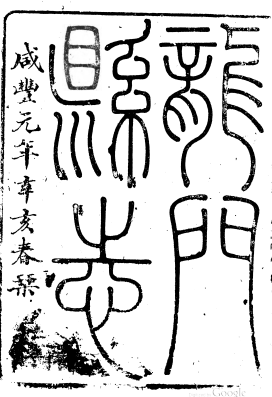 龍門
縣志
咸豐元年辛亥春
Google